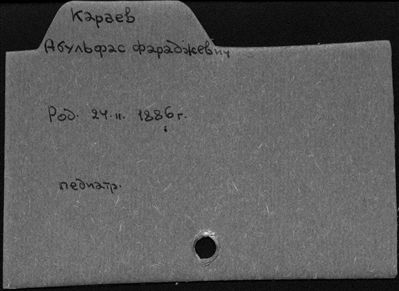 Караев
Абульфас Фараджевич
Род. 24.II. 1886 г.
педиатр.